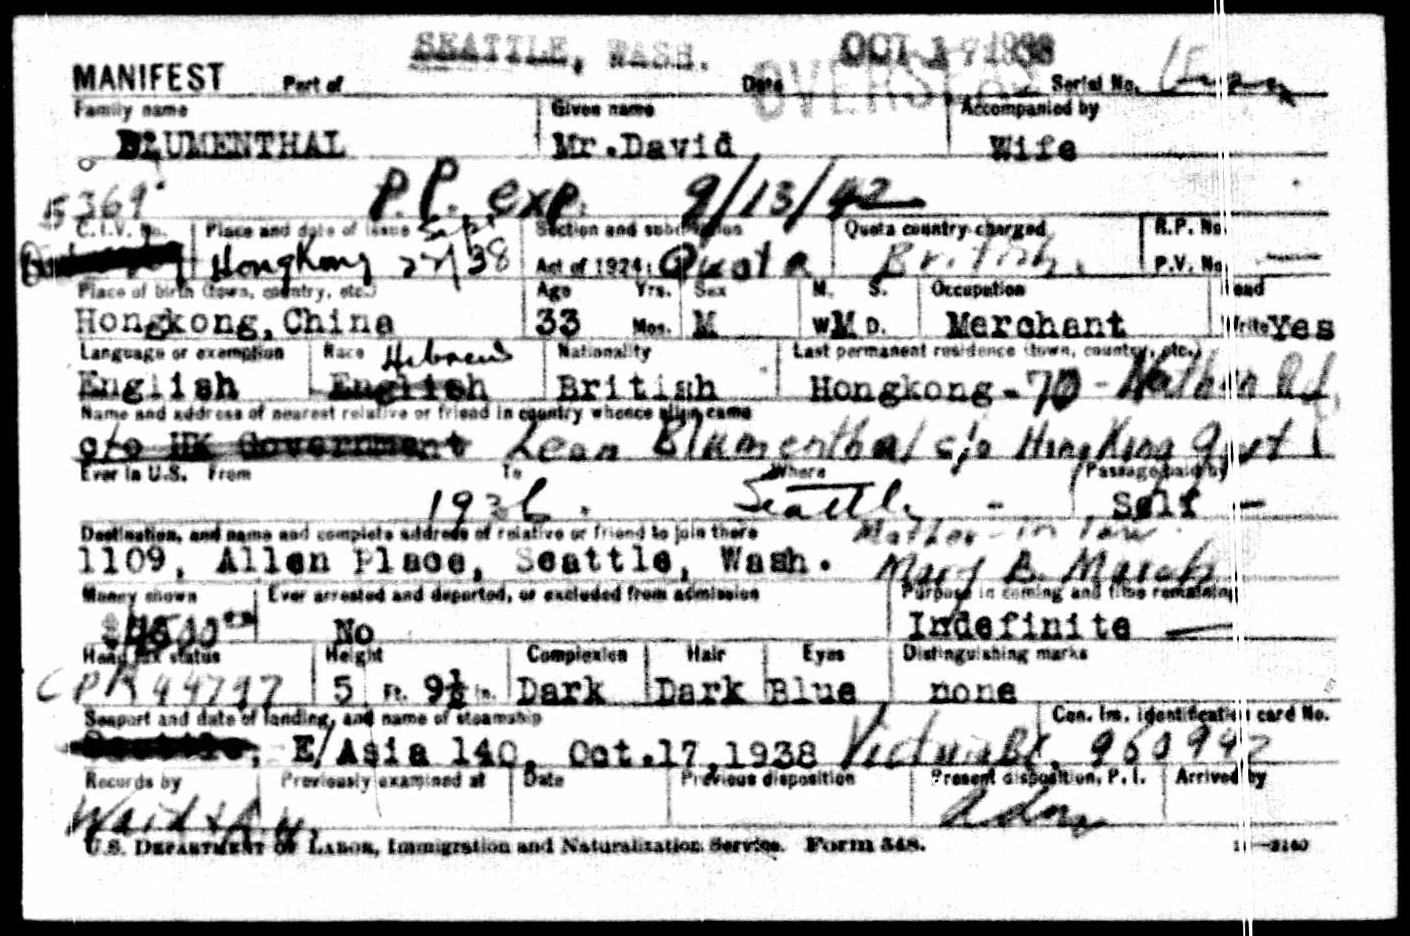 SEATTLE, WASH. OCT 17 1938
OVERSEAS
MANIFEST Part of Date Serial No.
Family name Given name Accompanied by
BLUMENTHAL Mr.David Wife
5369 P.P. exp. 9/13/42
C.I.V. No. Place and date of issue Section and subdivision Quota country charged R.P. No.
Hongkong Sept 27/38 Act of 1924: Quota British. P.V. No.
Place of birth (town, country, etc.) Age Yrs. Sex M. S. Occupation Read
Hongkong, China 33 Mos. M W M D. Merchant Write Yes
Language or exemption Race Hebrew Nationality Last permanent residence (town, country, etc.)
English English British Hongkong - 70 - Nathan Rd
Name and address of nearest relative or friend in country whence alien came
c/o HK Government Leon Blumenthal c/o HongKong Govt
Ever in U.S. From To Where Passage paid by
1936. Seattle - Self -
Destination, and name and complete address of relative or friend to join there Mother-in law
1109, Allen Place, Seattle, Wash. Mary B.
Money shown Ever arrested and deported, or excluded from admission Purpose in coming and time remaining
No Indefinite
Head tax status Height Complexion Hair Eyes Distinguishing marks
CPR 44797 5 Ft. 9½ In. Dark Dark Blue none
Seaport and date of landing, and name of steamship Con. Im. identification card No.
Seattle, E/Asia 140, Oct.17,1938 Victoria BC, 960992
Records by Previously examined at Date Previous disposition Present disposition, P. I. Arrived by
Adm
U.S. DEPARTMENT OF LABOR, Immigration and Naturalization Service. Form 548.